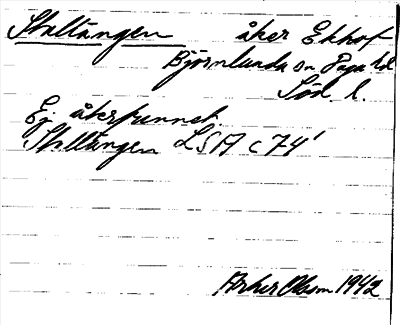 Stalltängen åker Ekhof
Björnlunda sn Daga hd
Söd. l.
Ej återfunnet.
Stalltängen LSA C 74'
Olsson 1942